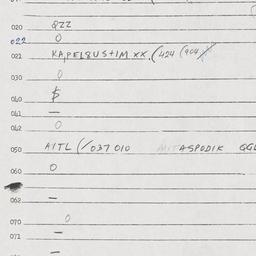 020 QZZ
022 0
021 KAPELQUSTIM XX.(424 (904
030 0
$
040 —
041
042 0
050 AITL (/037 010 ASPODIK QGL
060 0
062 —
070 0
071 —
—